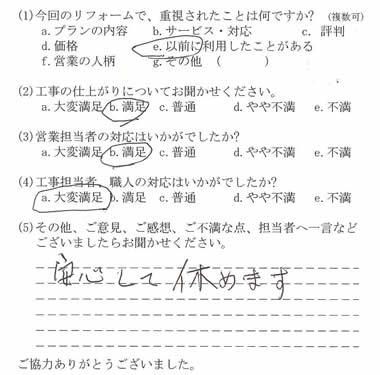 (1)今回のリフォームで、重視されたことは何ですか? (複数可)
a.プランの内容 b.サービス・対応 c. 評判
d.価格 e.以前に利用したことがある
f.営業の人柄 g.その他 ( )
(2)工事の仕上がりについてお聞かせください。
a.大変満足 b.満足 c.普通 d.やや不満 e.不満
(3)営業担当者の対応はいかがでしたか?
a.大変満足 b.満足 c.普通 d.やや不満 e.不満
(4)工事担当者、職人の対応はいかがでしたか?
a.大変満足 b.満足 c.普通 d.やや不満 e.不満
(5)その他、ご意見、ご感想、ご不満な点、担当者へ一言など
ございましたらお聞かせください。
安心して休めます
ご協力ありがとうございました。